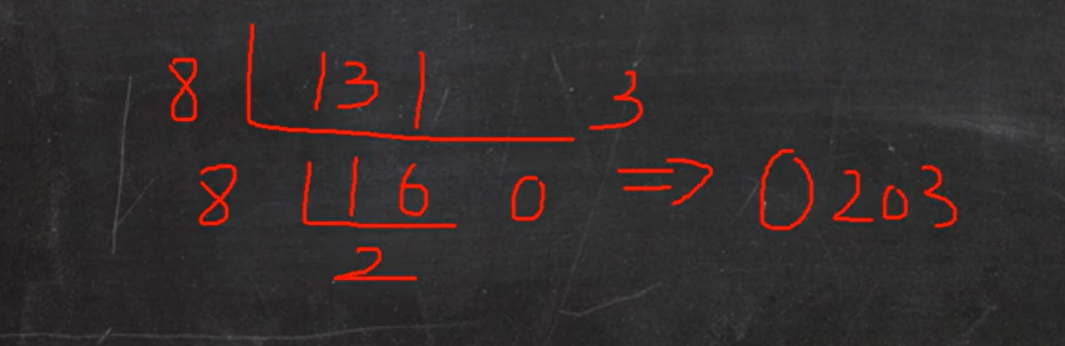 8 131 3
8 16 0 ⇒ 0203
2